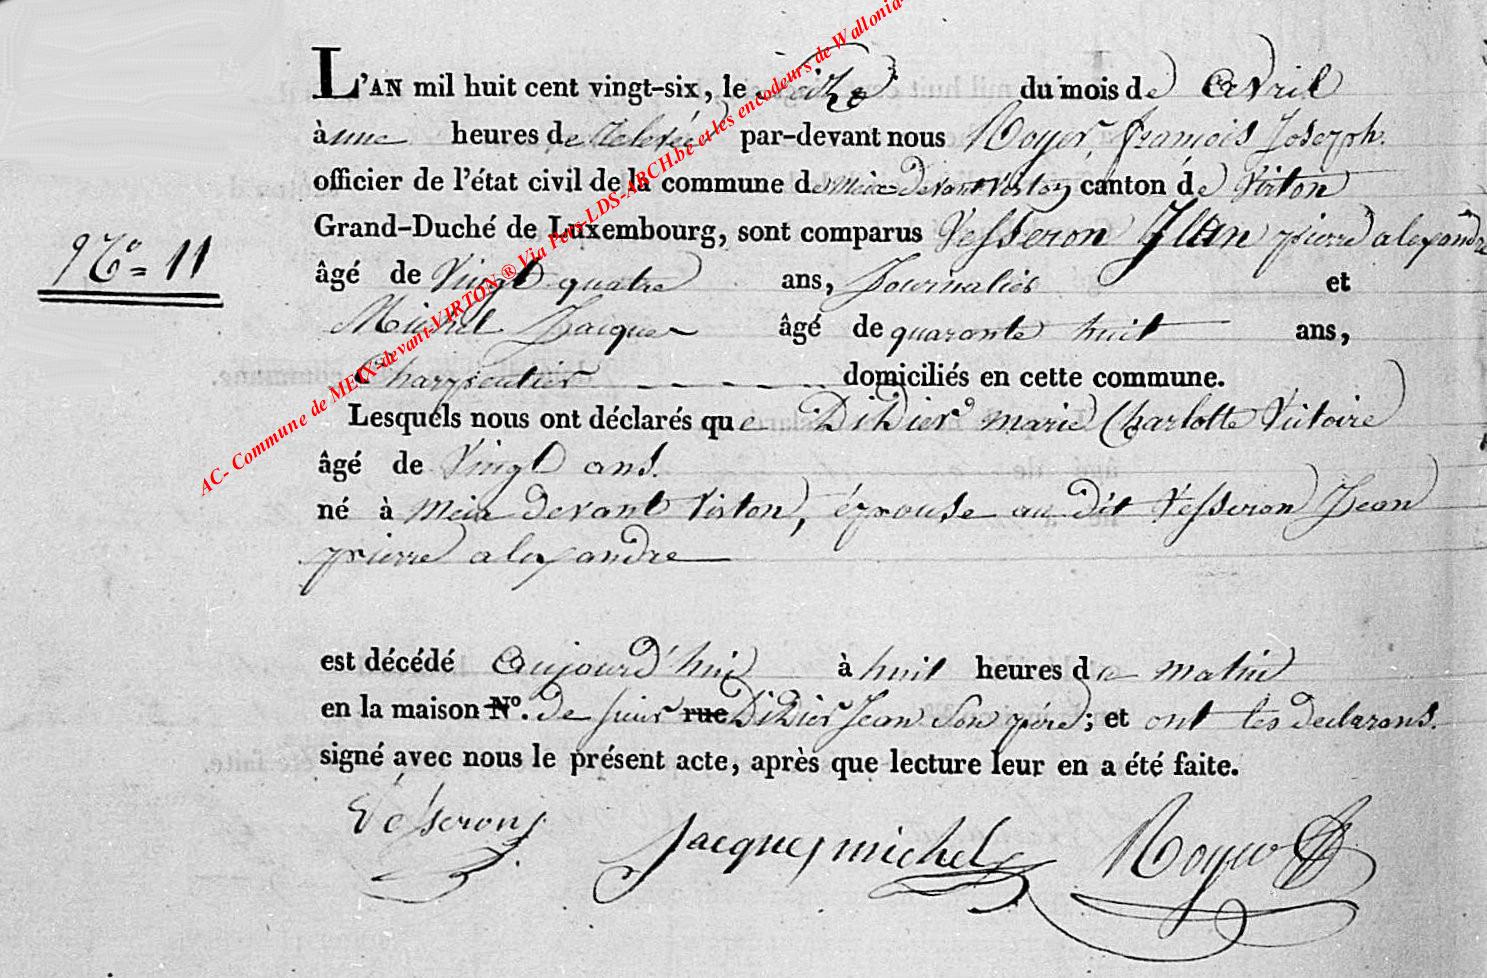 L'AN mil huit cent vingt-six, le seize du mois de avril
à une heures de relevée par-devant nous Royer, françois Joseph.
officier de l'état civil de la commune de meix devant virton canton de Virton
Grand-Duché de Luxembourg, sont comparus Vesseron Jean pierre alexandre
N° = 11
âgé de Vingt quatre ans, Journalier et
Michel Jacques âgé de quarante huit ans,
Charpentier domiciliés en cette commune.
Lesquels nous ont déclarés que Didier marie Charlotte Victoire
âgé de Vingt ans.
né à meix devant Virton, épouse au dit Vesseron Jean
pierre alexandre
est décédé aujourd'hui à huit heures du matin
en la maison N°. de sieur rue Didier Jean son père; et ont les declarans.
signé avec nous le présent acte, après que lecture leur en a été faite.
Vesseron
Jacques michel
Royer
AC- Commune de MEIX-devant-VIRTON ® Via Patr-LDS-ARCH.be et les encodeurs de Wallonia-